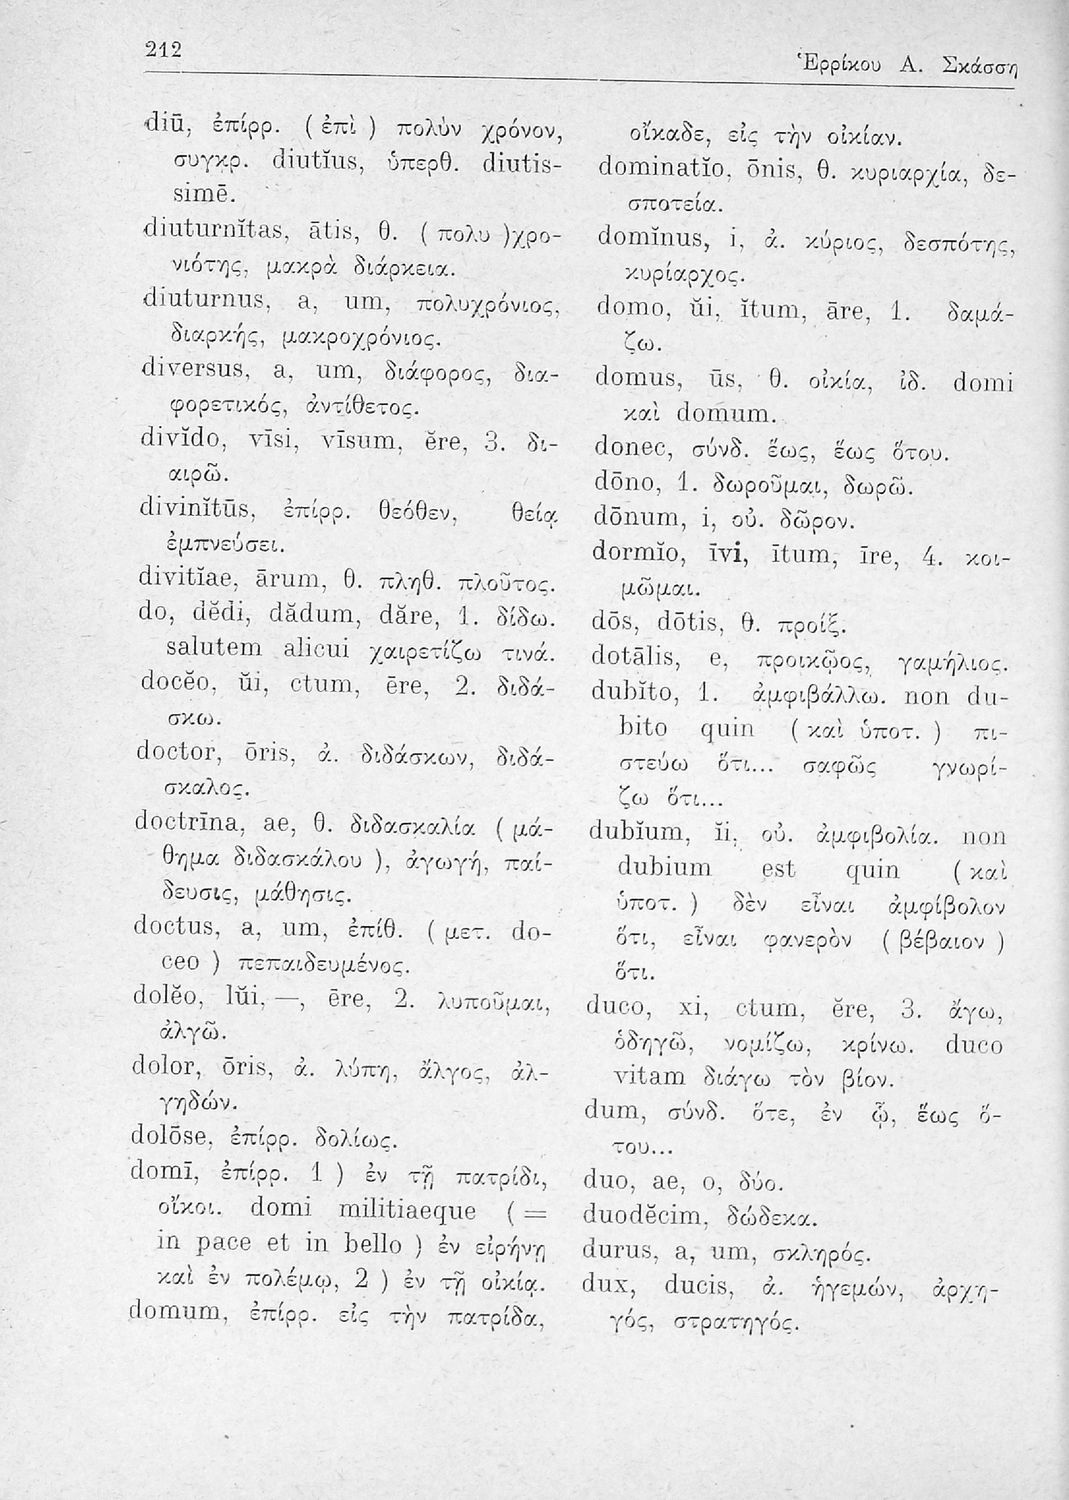 212
Ἑρρίκου Α. Σκάσση
diū, ἐπίρρ. ( ἐπὶ ) πολὺν χρόνον,
συγκρ. diutĭus, ὑπερθ. diutis-
simē.
diuturnĭtas, ātis, θ. ( πολυ )χρο-
νιότης, μακρὰ διάρκεια.
diuturnus, a, um, πολυχρόνιος,
διαρκής, μακροχρόνιος.
diversus, a, um, διάφορος, δια-
φορετικός, ἀντίθετος.
divĭdo, vīsi, vīsum, ĕre, 3. δι-
αιρῶ.
divinĭtūs, ἐπίρρ. θεόθεν, θείᾳ
ἐμπνεύσει.
divitĭae, ārum, θ. πληθ. πλοῦτος.
do, dĕdi, dădum, dăre, 1. δίδω.
salutem alicui χαιρετίζω τινά.
docĕo, ŭi, ctum, ēre, 2. διδά-
σκω.
doctor, ōris, ἀ. διδάσκων, διδά-
σκαλος.
doctrīna, ae, θ. διδασκαλία ( μά-
θημα διδασκάλου ), ἀγωγή, παί-
δευσις, μάθησις.
doctus, a, um, ἐπίθ. ( μετ. do-
ceo ) πεπαιδευμένος.
dolĕo, lŭi, —, ēre, 2. λυποῦμαι,
ἀλγῶ.
dolor, ōris, ἀ. λύπη, ἄλγος, ἀλ-
γηδών.
dolōse, ἐπίρρ. δολίως.
domī, ἐπίρρ. 1 ) ἐν τῇ πατρίδι,
οἴκοι. domi militiaeque ( =
in pace et in bello ) ἐν εἰρήνῃ
καὶ ἐν πολέμῳ, 2 ) ἐν τῇ οἰκίᾳ.
domum, ἐπίρρ. εἰς τὴν πατρίδα,
οἴκαδε, εἰς τὴν οἰκίαν.
dominatĭo, ōnis, θ. κυριαρχία, δε-
σποτεία.
domĭnus, i, ἀ. κύριος, δεσπότης,
κυρίαρχος.
domo, ŭi, ĭtum, āre, 1. δαμά-
ζω.
domus, ūs, θ. οἰκία, ἰδ. domi
καὶ domum.
donec, σύνδ. ἕως, ἕως ὅτου.
dōno, 1. δωροῦμαι, δωρῶ.
dōnum, i, οὐ. δῶρον.
dormĭo, īvi, ītum, īre, 4. κοι-
μῶμαι.
dōs, dōtis, θ. προίξ.
dotālis, e, προικῷος, γαμήλιος.
dubĭto, 1. ἀμφιβάλλω. non du-
bito quin ( καὶ ὑποτ. ) πι-
στεύω ὅτι... σαφῶς γνωρί-
ζω ὅτι...
dubĭum, ĭi, οὐ. ἀμφιβολία. non
dubium est quin ( καὶ
ὑποτ. ) δὲν εἶναι ἀμφίβολον
ὅτι, εἶναι φανερὸν ( βέβαιον )
ὅτι.
duco, xi, ctum, ĕre, 3. ἄγω,
ὁδηγῶ, νομίζω, κρίνω. duco
vitam διάγω τὸν βίον.
dum, σύνδ. ὅτε, ἐν ᾧ, ἕως ὅ-
του...
duo, ae, o, δύο.
duodĕcim, δώδεκα.
durus, a, um, σκληρός.
dux, ducis, ἀ. ἡγεμών, ἀρχη-
γός, στρατηγός.